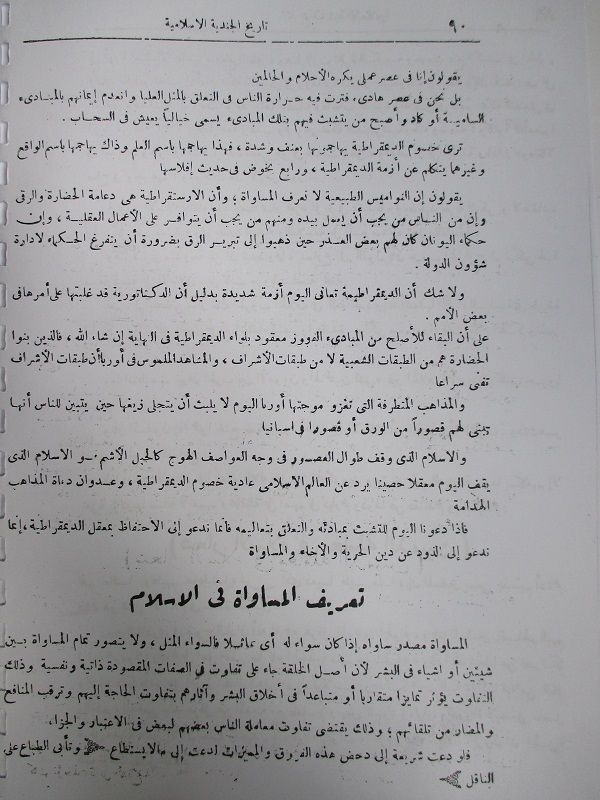 ٩٠
تاريخ الجندية الاسلامية
يقولون إنا فى عصر عملى يكره الأحلام والحالمين
بل نحن فى عصر هادى، فترت فيه حرارة الناس فى التعلق بالمثل العليا وانعدم إيمانهم بالمبادىء
السامية أو كاد وأصبح من يتشبث فيهم بتلك المبادىء يسمى خيالياً يعيش فى السحاب .
ترى خصوم الديمقراطية يهاجمونها بعنف وشدة ، فهذا يهاجمها باسم العلم وذاك يهاجمها باسم الواقع
وغيرهما يتكلم عن أزمة الديمقراطية ، ورابع يخوض فى حديث إفلاسها
يقولون إن النواميس الطبيعية لا تعرف المساواة ؛ وأن الارستقراطية هى دعامة الحضارة والرقى
وإن من الناس من يجب أن يعمل بيده ومنهم من يجب أن يتوافر على الأعمال العقلية ، وإن
حكماء اليونان كان لهم بعض العذر حين ذهبوا إلى تبرير الرق بضرورة أن يتفرغ الحكماء لادارة
شؤون الدولة .
ولا شك أن الديمقراطية تعانى اليوم أزمة شديدة بدليل أن الدكتاتورية قد غلبتها على أمرها فى
بعض الأمم .
على أن البقاء للأصلح من المبادىء الفوز معقود بلواء الديمقراطية فى النهاية إن شاء الله ، فالذين بنوا
الحضارة هم من الطبقات الشعبية لا من طبقات الأشراف ، والمشاهد الملموس فى أوربا أن طبقات الأشراف
تفنى سراعا
والمذاهب المتطرفة التى تغزو موجتها أوربا اليوم لا يلبث أن يتجلى زيفها حين يتبين للناس أنها
تبنى لهم قصوراً من الورق أو قصورا فى اسبانيا
والاسلام الذى وقف طوال العصور فى وجه العواصف الهوج كالجبل الأشم هو الاسلام الذى
يقف اليوم معقلا حصينا يرد عن العالم الاسلامى عادية خصوم الديمقراطية ، وعدوان دعاة المذاهب
الهدامة
فاذا دعونا اليوم للتشبث بمبادئه والتعلق بتعاليمه فانما ندعو إلى الاحتفاظ بمعقل الديمقراطية ، إنما
ندعو إلى الذود عن دين الحرية والأخاء والمساواة
تعريف المساواة فى الاسلام
المساواة مصدر ساواه إذا كان سواء له أى مماثلا فالسواء المثل ، ولا يتصور تمام المساواة بين
شيئين أو اشياء فى البشر لأن أصل الخلقة جاء على تفاوت فى الصفات المقصودة ذاتية ونفسية وذلك
التفاوت يؤثر تمايزا متقاربا أو متباعداً فى أخلاق البشر وآثارهم بتفاوت الحاجة إليهم وترقب المنافع
والمضار من تلقائهم ؛ وذلك يقتضى تفاوت معاملة الناس بعضهم لبعض فى الاعتبار والجزاء
فلو دعت شريعة إلى دحض هذه الفروق والمميزات لدعت إلى مالايستطاع وتأبى الطباع على
الناقل